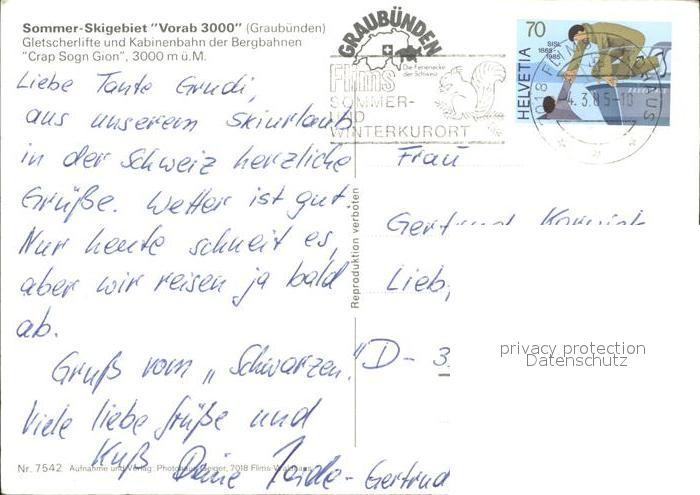 Sommer-Skigebiet "Vorab 3000" (Graubünden)
Gletscherlifte und Kabinenbahn der Bergbahnen
"Crap Sogn Gion", 3000 m ü.M.
Liebe Tante Grudi,
aus unserem Skiurlaub
in der Schweiz herzliche
Grüße. Wetter ist gut.
Nur heute schneit es,
aber wir reisen ja bald
ab.
Gruß vom „Schwarzen."
Viele liebe Grüße und
Kuß Deine -Gertrud
Nr. 7542 Aufnahme und Verlag: Geiger, 7018 Flims-Waldhaus
Reproduktion verboten
GRAUBÜNDEN
Die Ferienecke
der Schweiz
Flims
SOMMER-
UND
WINTERKURORT
70
SISL
1885-
1985
HELVETIA
7018 FLIMS WALDHAUS
4.3.85-10
Frau
Gertrud
Lieb,
D- 3
privacy protection
Datenschutz